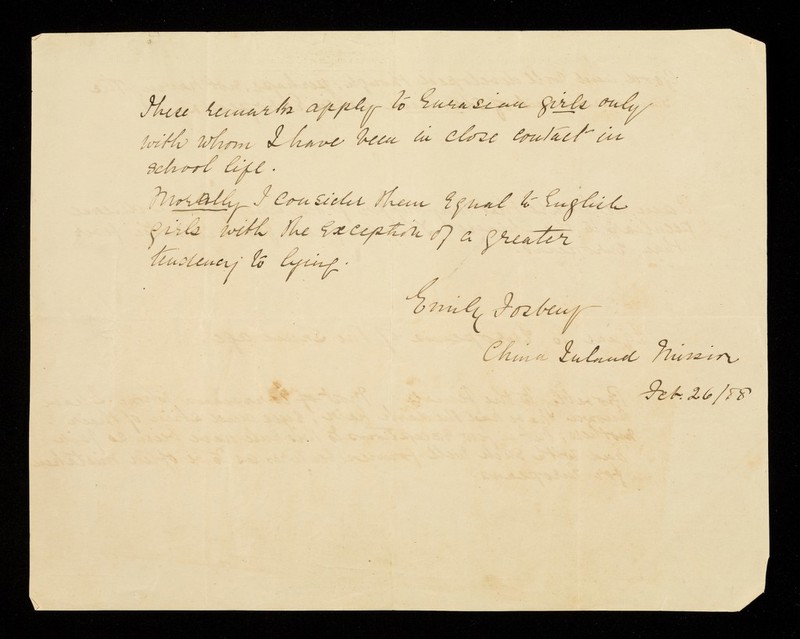 These remarks apply to Eurasian girls only
with whom I have been in close contact in
school life.
Morally I consider them equal to English
girls with the exception of a greater
tendency to lying.
Emily
China Inland Mission
Feb. 26/88